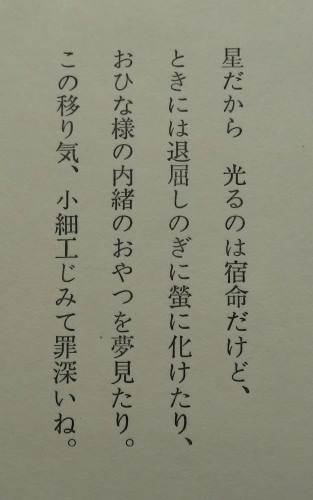 星だから　光るのは宿命だけど、
ときには退屈しのぎに螢に化けたり、
おひな様の内緒のおやつを夢見たり。
この移り気、小細工じみて罪深いね。